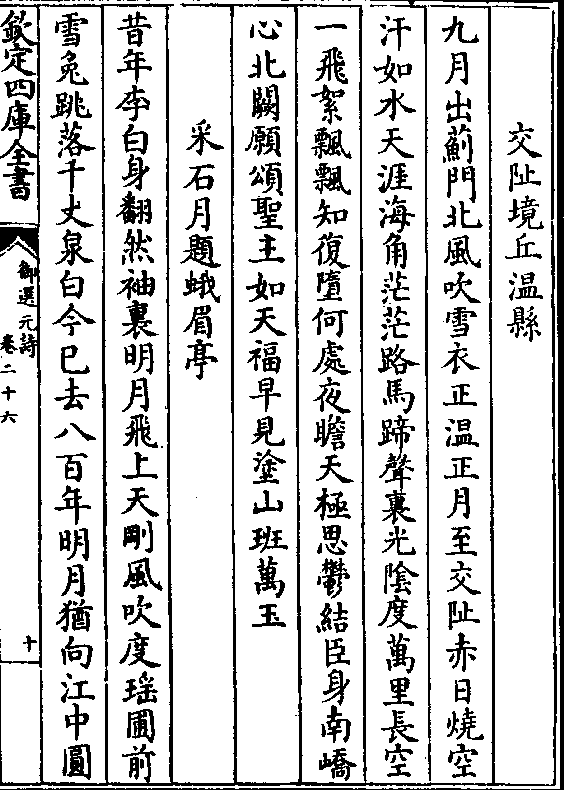 交阯境丘温縣
九月出薊門北風吹雪衣正温正月至交阯赤日燒空
汗如水天涯海角茫茫路馬蹄聲裏光陰度萬里長空
一飛絮飄飄知復墮何處夜瞻天極思鬱結臣身南嶠
心北闕願頌聖主如天福早見塗山班萬玉
采石月題蛾眉亭
昔年李白身翻然袖裏明月飛上天剛風吹度瑶圃前
雪兔跳落千丈泉白今已去八百年明月猶向江中圓
欽定四庫全書
御選元詩
卷二十六
十